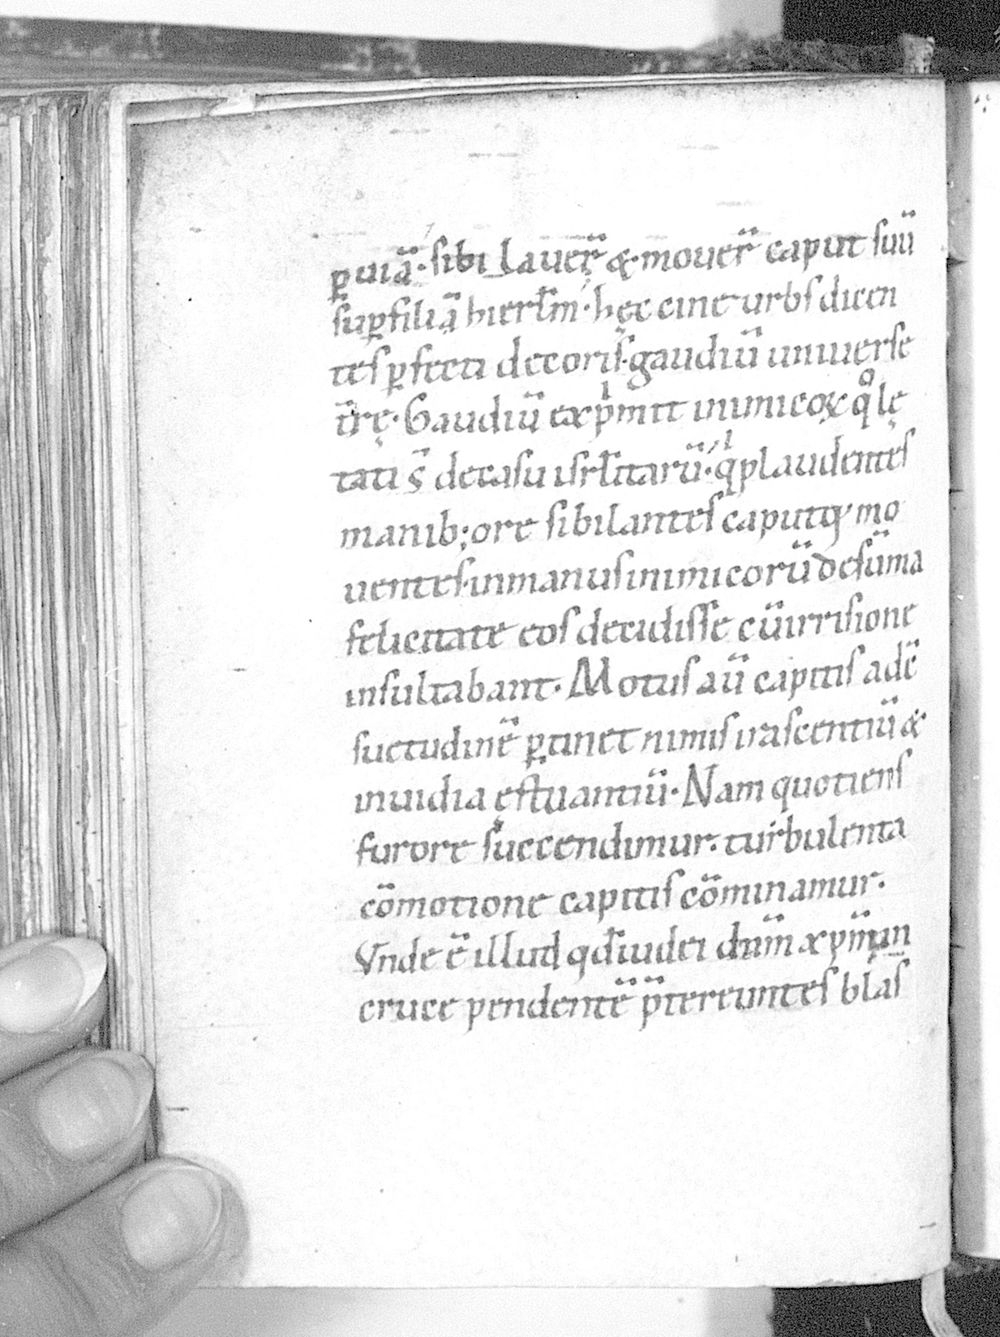 ꝑ uiā·sibilauer̄ & mouer̄ caput suū
suꝑ filiā hierlm̄·hęc cine urbs dicen
tes ꝑfecti decoris·gaudiū uniuerse
tr̄ę·Gaudiū exp̍mit inimicoꝝ qͦ lę
tati s̄ de casu isrl̄itarū·q̍ plaudentes
manib;ore sibilantes caputq; mo
uentes·inmanus inimicorū de sūma
felicitate eos decidisse cū irrisione
insultabant·Motus aū capitis ad ē
suetudinē ꝑtinet nimis irascentiū &
inuidia ęstuantiū·Nam quotiens
furore succendimur·turbulenta
cōmotione capitis cōminamur.
Vnde ē illud qđ iudei dn̄m xp̄m in
cruce pendentē p̄tereuntes blas̄